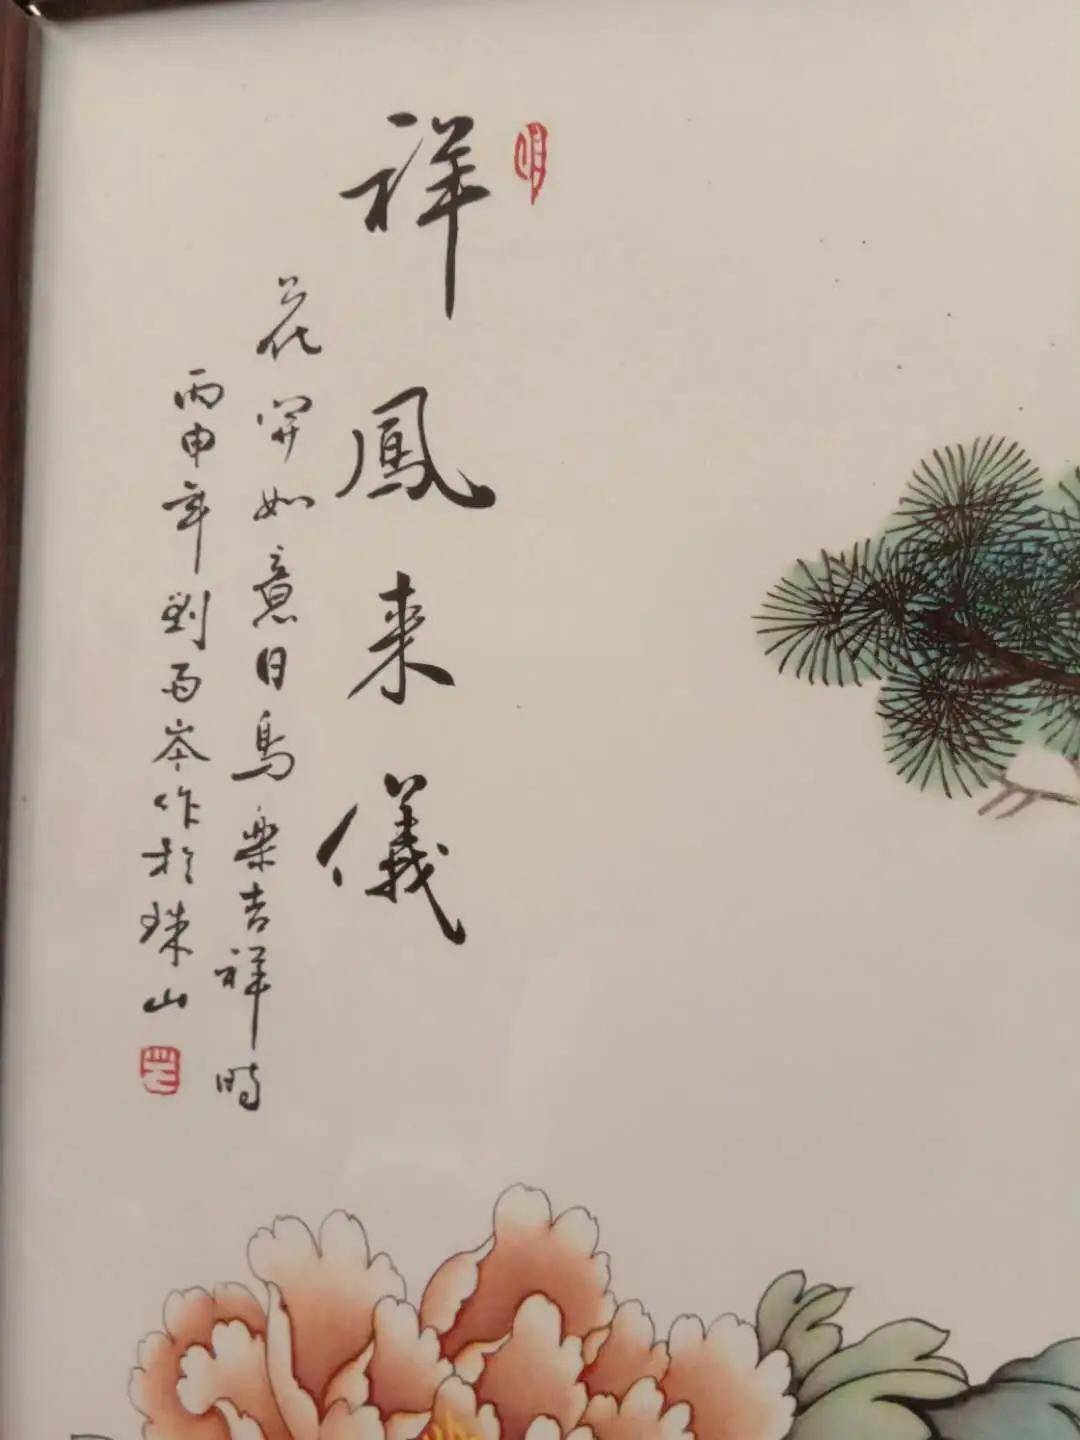 祥鳳来儀
花開如意日鳥樂吉祥時
丙申年劉雨岑作於珠山